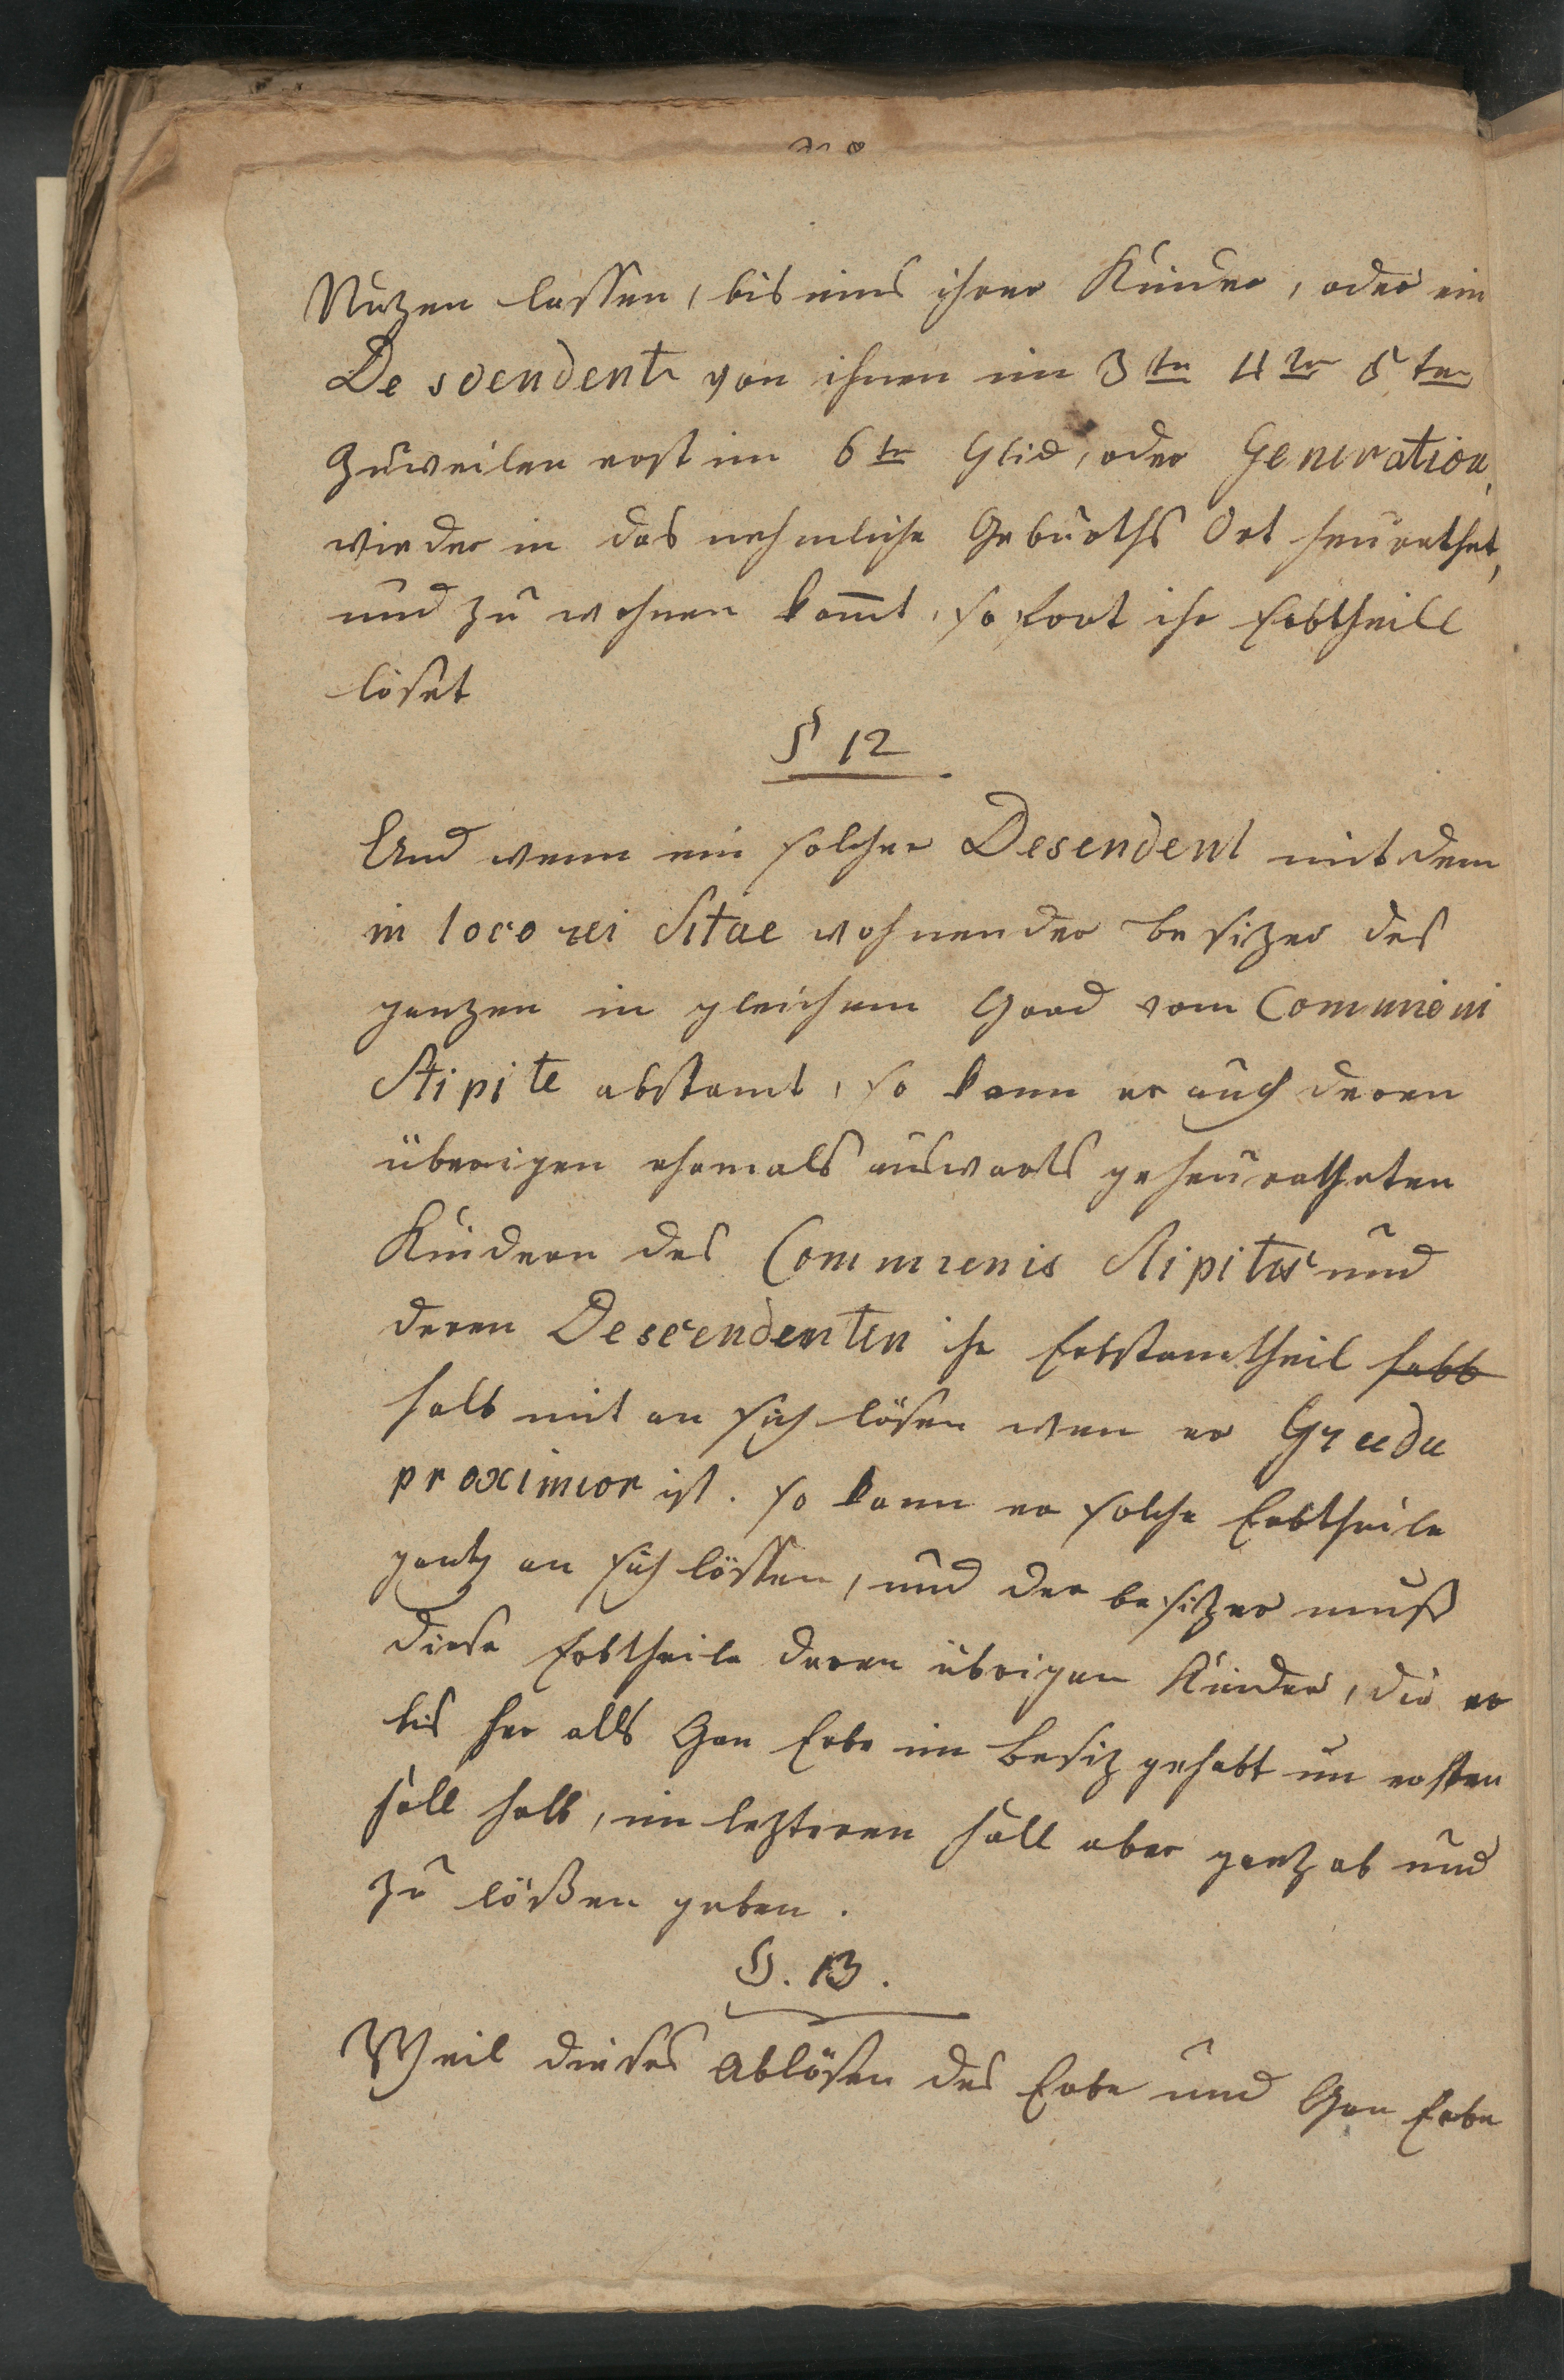 Nuzen lassen, bis eins ihrer Kinder, oder ein
Descendente von ihnen im 3ten 4ten 5ten
Zuweilen erst im 6ten Glid, oder Generation,
wieder in das nehmliche Geburths Ort heurathet,
und zu wohnen komt, so fort ihr Erbtheill
löset
§ 12
Und wenn ein solcher Desendent mit dem
in loco rei Sitae wohnender besizer des
ganzen in gleichem Grad vom Communi
Stipite abstamt, so kann er auch deren
überigen ehemals auswarts geheuratheten
Kindern des Communis Stipites und
deren Descendenten ihr Erbstamtheil habb
halb mit an sich lösen wen er Gradu
proximior ist. so kann er solche Erbtheile
gantz an sich lössen, und der besitzer muß
diese Erbtheile deren übrigen Kinder, die er
bis her alls Gan Erbe im besiz gehabt im ersten
fall halb, im lezteren fall aber gantz ab und
zu lößen geben.
§. 13.
Weil dieses Ablösen des Erbe und Gan Erbe